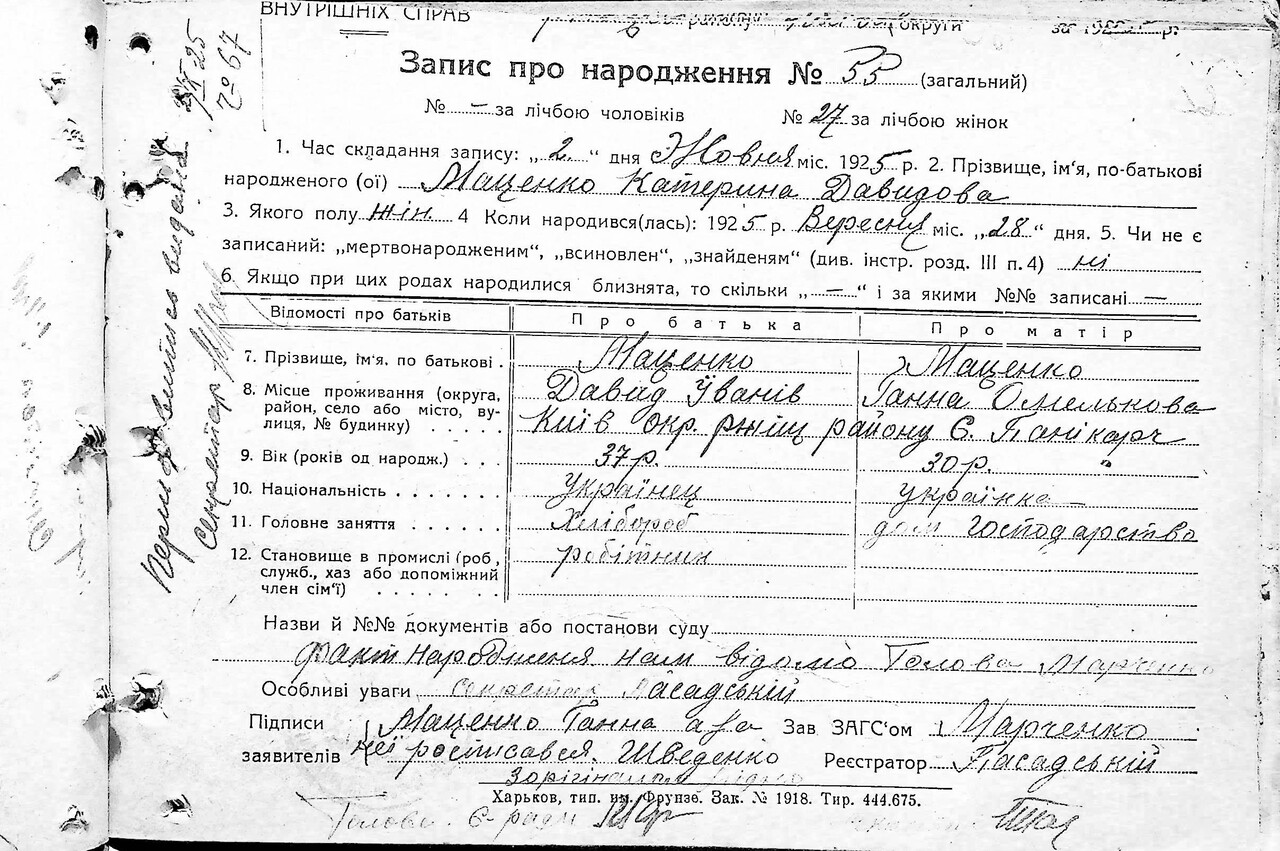 ВНУТРІШНІХ СПРАВ
району округи за 1925 р.
Запис про народження № 55 (загальний)
№ – за лічбою чоловіків № 27 за лічбою жінок
1. Час складання запису: „ 2. “ дня Жовня міс. 1925 р. 2. Прізвище, ім'я, по-батькові
народженого (ої) Маценко Катерина Давидова
3. Якого полу жін. 4 Коли народився(лась): 1925 р. Вересня міс. „28“ дня. 5. Чи не є
записаний: „мертвонародженим“, „всиновлен“, „знайденям“ (див. інстр. розд. III п. 4) ні
6. Якщо при цих родах народилися близнята, то скільки „ — “ і за якими №№ записані —
Відомості про батьків Про батька Про матір
7. Прізвище, ім'я. по батькові . Маценко Маценко
8. Місце проживання (округа, Давид Іванів Ганна Омелькова
район, село або місто, ву-
лиця, № будинку) . . . . . Київ окр. ржищ району Є. Панікарч
9. Вік (років од народж.) . . . 37 р. 30 р. "
10. Національність . . . . . . . Українец українка
11. Головне заняття . . . . . . Хлібороб дом господарство
12. Становище в промислі (роб, робітник
служб., хаз або допоміжний
член сім'ї) . . . . . . . .
Назви й №№ документів або постанови суду
факт народження нам відомо Голова Марченко
Особливі уваги Секретар Пасадській
Підписи Маценко Ганна а за Зав ЗАГС'ом Марченко
заявителів неї росписався. Шведенко Реєстратор Пасадській
Зорігіналом вірно
Харьков, тип. им. Фрунзе. Зак. № 1918. Тир. 444.675.
Голова с-ради
видана
секретар
№ 67